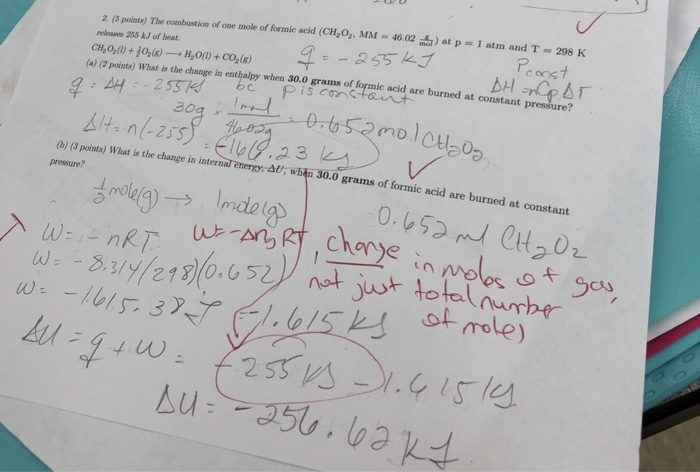 2. (5 points) The combustion of one mole of formic acid (CH₂O₂, MM = 46.02 g/mol) at p = 1 atm and T = 298 K
releases 255 kJ of heat.
CH₂O₂(l) + ½O₂(g) ⟶ H₂O(l) + CO₂(g)
q = -255kJ
Pconst
ΔH = nCpΔT
(a) (2 points) What is the change in enthalpy when 30.0 grams of formic acid are burned at constant pressure?
q = ΔH = -255kJ bc P is constant
30g × 1mol/46.02g = 0.652mol CH₂O₂
ΔH = n(-255) = -166.23 kJ
(b) (3 points) What is the change in internal energy, ΔU, when 30.0 grams of formic acid are burned at constant
pressure?
½mole(g) → 1mole(g)
0.652 mol CH₂O₂
W = -nRT
W = -Δn₉RT, change
in moles of gas,
not just total number
of moles
W = -8.314(298)(0.652)
W = -1615.38J
= -1.615kJ
ΔU = q + w =
-255kJ -1.615kJ
ΔU = -256.62kJ